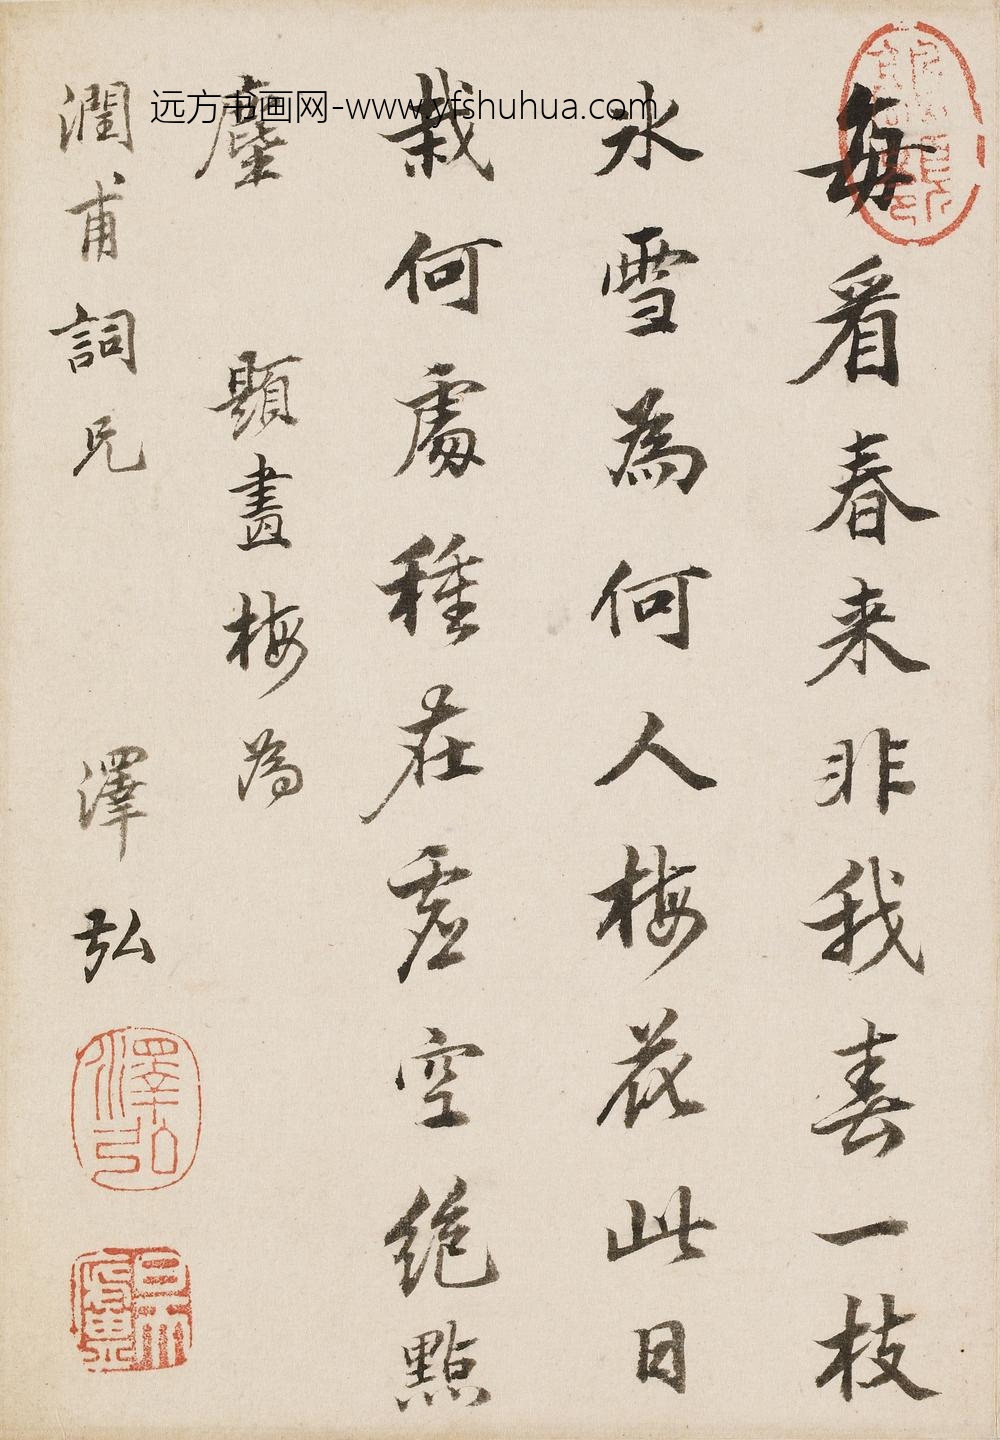 每看春来非我春一枝
冰雪為何人梅花此日
栽何處種在虛空絕點
塵　題畫梅為
潤甫詞兄　澤弘
澤弘
远方书画网-www.yfshuhua.com